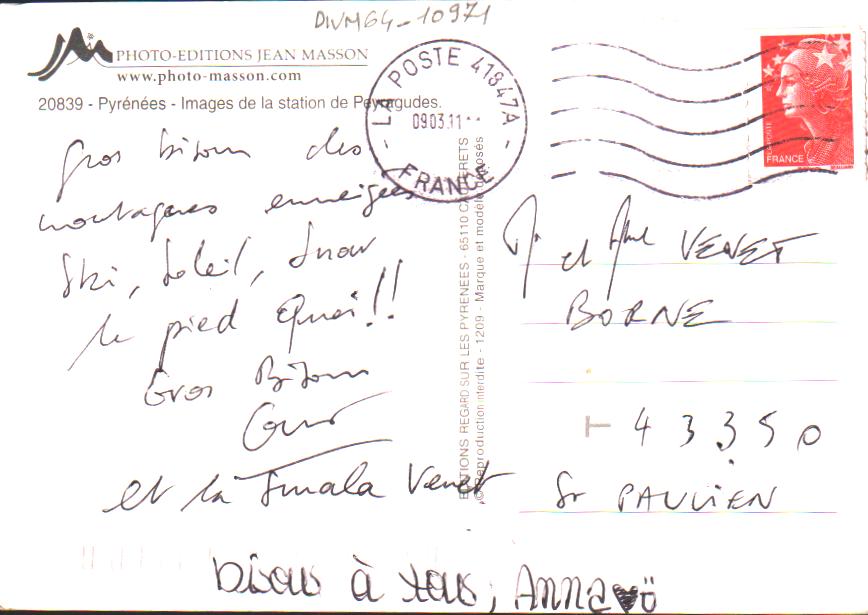 DIVM64-10971
PHOTO-EDITIONS JEAN MASSON
www.photo-masson.com
20839 - Pyrénées - Images de la station de Peyragudes.
LA POSTE 41847A
09.03.11
FRANCE
LA POSTE
FRANCE
Gros bisous des
montagnes enneigées
Ski, Soleil, Snow
le pied Quoi!!
Gros Bisous
et la Smala Venet
bisous à tous, Anna♥ö
EDITIONS REGARD SUR LES PYRENEES - 65110 CAUTERETS
© Reproduction interdite - 1209 - Marque et modèle déposés
Mr et Mme VENET
BORNE
43350
St PAULIEN